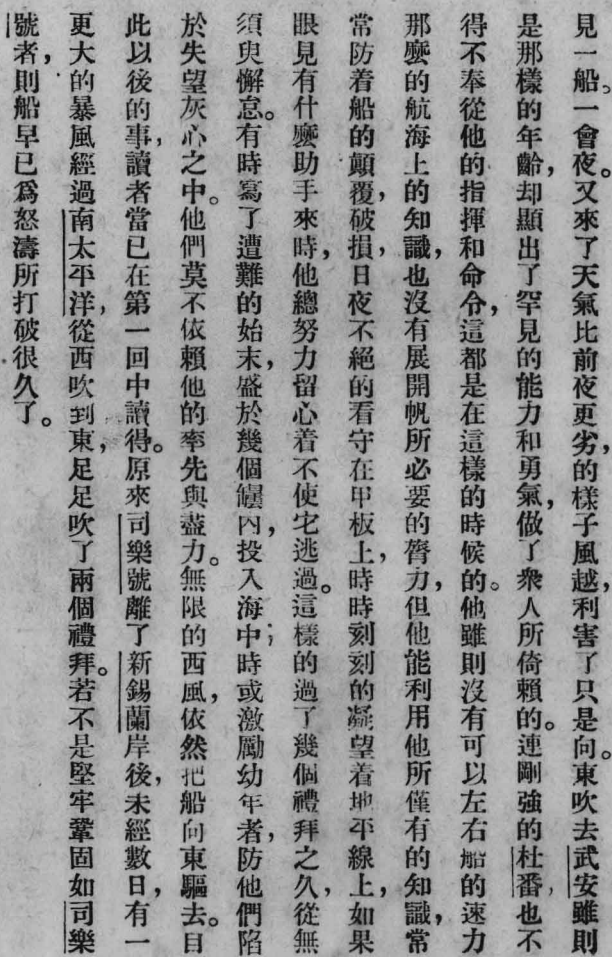 見一船。一會夜。又來了天氣比前夜更劣,的樣子風越,利害了只是向。東吹去武安雖則
是那樣的年齡,却顯出了罕見的能力和勇氣,做了衆人所倚賴的。連剛強的杜番,也不
得不奉從他的指揮和命令,這都是在這樣的時候的。他雖則沒有可以左右船的速力
那麼的航海上的知識,也沒有展開帆所必要的膂力,但他能利用他所僅有的知識,常
常防着船的顛覆,破損,日夜不絕的看守在甲板上,時時刻刻的凝望着地平線上,如果
眼見有什麼助手來時,他總努力留心着不使它逃過。這樣的過了幾個禮拜之久,從無
須臾懈怠。有時寫了遭難的始末,盛於幾個罎內,投入海中;時或激勵幼年者,防他們陷
於失望灰心之中。他們莫不依賴他的率先與盡力。無限的西風,依然把船向東驅去。自
此以後的事,讀者當已在第一回中讀得。原來司樂號離了新錫蘭岸後,未經數日,有一
更大的暴風經過南太平洋,從西吹到東,足足吹了兩個禮拜。若不是堅牢鞏固如司樂
號者,則船早已爲怒濤所打破很久了。